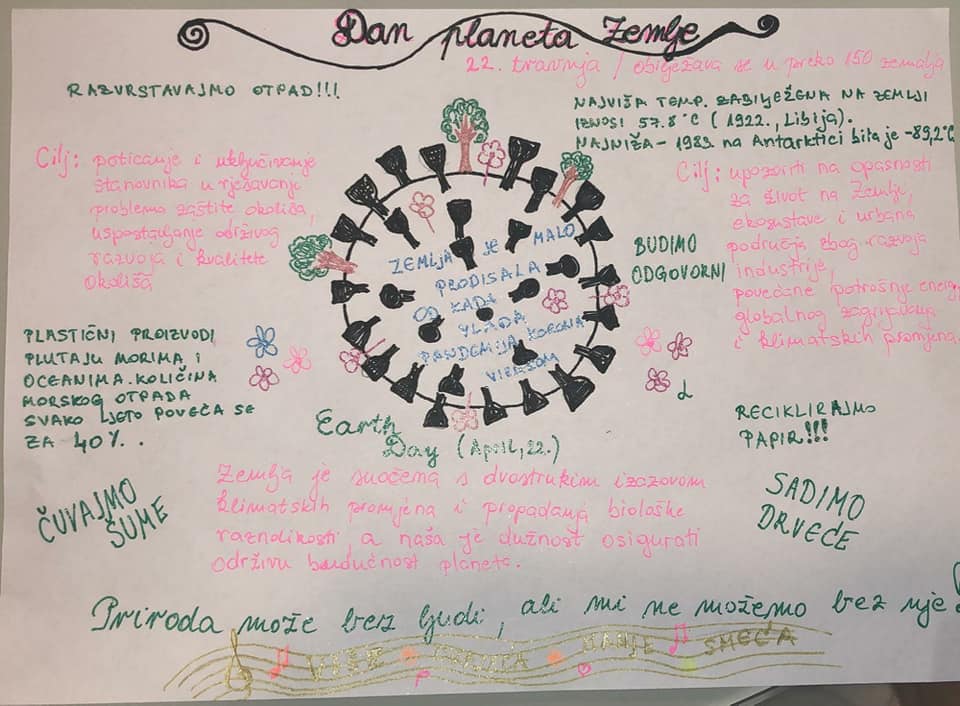 Dan planeta Zemlje
22. travnja / obilježava se u preko 150 zemalja
RAZVRSTAVAJMO OTPAD!!!
NAJVIŠA TEMP. ZABILJEŽENA NA ZEMLJI
IZNOSI 57.8°C (1922., Libija).
NAJNIŽA - 1983. na Antarktici bila je -89,2°C
Cilj: poticanje i uključivanje
stanovnika u rješavanje
problema zaštite okoliša,
uspostavljanje održivog
razvoja i kvalitete
okoliša
Cilj: upozoriti na opasnosti
za život na Zemlji,
ekosustave i urbana
područja zbog razvoja
industrije,
povećane potrošnje energ
globalnog zagrijavanja
i klimatskih promjena.
BUDIMO
ODGOVORNI
ZEMLJA JE MALO
PRODISALA
OD KADA
VLADA
PANDEMIJA KORONA
VIRUSOM
PLASTIČNI PROIZVODI
PLUTAJU MORIMA I
OCEANIMA. KOLIČINA
MORSKOG OTPADA
SVAKO LJETO POVEĆA SE
ZA 40%..
Earth
Day (April, 22.)
RECIKLIRAJMO
PAPIR!!!
ČUVAJMO
ŠUME
Zemlja je suočena s dvostrukim izazovom
klimatskih promjena i propadanja biološke
raznolikosti a naša je dužnost osigurati
održivu budućnost planeta.
SADIMO
DRVEĆE
Priroda može bez ljudi, ali mi ne možemo bez nje!
VIŠE CVIJEĆA MANJE SMEĆA